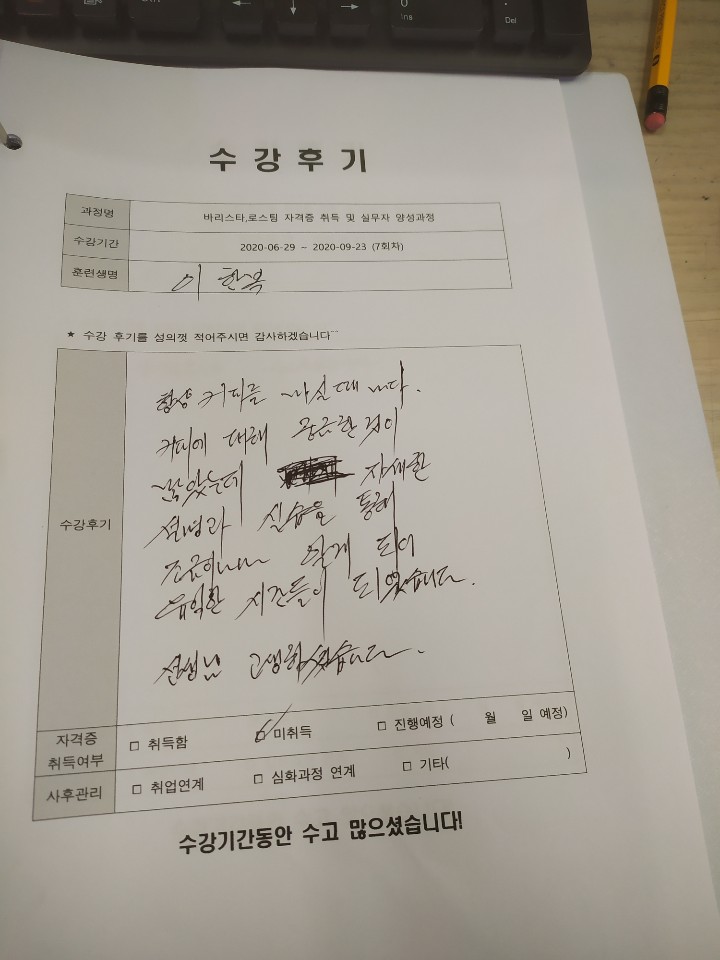 Ins
Del
수강후기
과정명 바리스타,로스팅 자격증 취득 및 실무자 양성과정
수강기간 2020-06-29 ~ 2020-09-23 (7회차)
훈련생명 이한복
★ 수강 후기를 성의껏 적어주시면 감사하겠습니다~~
수강후기
항상 커피를 마실때 마다.
커피에 대해 궁금한 것이
많았는데 자세한
설명과 실습을 통해
조금이나마 알게 되어
유익한 시간들이 되었습니다.
선생님 고생하셨습니다.
자격증 취득여부 □ 취득함 □ 미취득 □ 진행예정 ( 월 일 예정)
사후관리 □ 취업연계 □ 심화과정 연계 □ 기타( )
수강기간동안 수고 많으셨습니다!